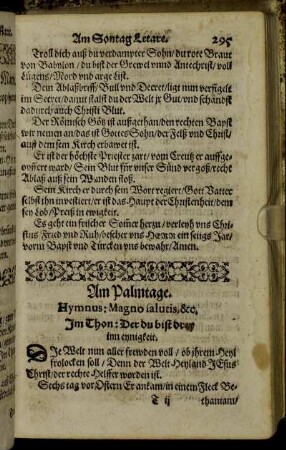 Am Sontag Letare. 295
Troll dich auß du verdampter Sohn / du rote Braut
von Babylon / du bist der Grewel vnnd Antechrist / voll
Lügens / Mord vnd arge list.
Dein Ablaßbrieff / Bull vnd Decret / ligt nun versigelt
im Secret / damit stalst du der Welt jr Gut / vnd schändst
dadurch auch Christi Blut.
Der Römisch Götz ist außgethan / den rechten Bapst
wir nemen an / das ist Gottes Sohn / der Felß vnd Christ /
auff dem sein Kirch erbawet ist.
Er ist der höchste Priester zart / vom Creutz er auffge-
opffert ward / Sein Blut für vnser Sünd vergoß / recht
Ablaß auß sein Wunden floß.
Sein Kirch er durch sein Wort regiert / Gott Vatter
selbst ihn investiert / er ist das Haupt der Christenheit / dem
sey Lob / Preiß in ewigkeit.
Es geht ein frischer Somer herzu / verleyh vns Chri-
stus Fried vnd Ruh / bescher vns HERR ein seligs Jar /
vorm Bapst vnd Türcken vns bewahr / Amen.
Am Palmtage.
Hymnus: Magno salutis, &c,
Im Thon: Der du bist drey
inn eynigkeit.
DJe Welt nun aller frewden voll / ob jhrem Heyl
frolocken soll / Denn der Welt Heyland JEsus
Christ / der rechte Helffer worden ist.
Sechs tag vor Ostern Er ankam / in einem Fleck Be-
T ij thaniam /